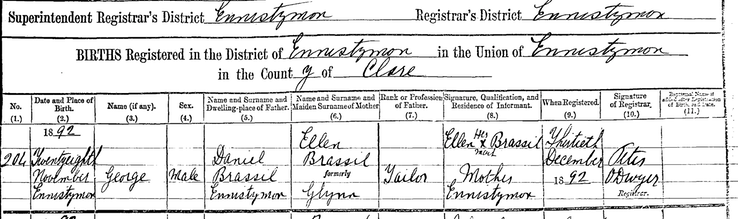 Superintendent Registrar's District Ennistymon Registrar's District Ennistymon
BIRTHS Registered in the District of Ennistymon in the Union of Ennistymon
in the County of Clare
No. Date and Place of Birth. Name (if any). Sex. Name and Surname and Dwelling-place of Father. Name and Surname and Maiden Surname of Mother Rank or Profession of Father. Signature, Qualification, and Residence of Informant. When Registered. Signature of Registrar.
(1.) (2.) (3.) (4.) (5.) (6.) (7.) (8.) (9.) (10.) (11.)
1892 Ellen Ellen Her X Brassil Thirtieth
mark
204 Twentyeight Daniel Brassil December Peter
November George Male Brassil formerly Tailor Mother 1892 O'Dwyer
Ennistymon Ennistymon Glynn Ennistymon Registrar.